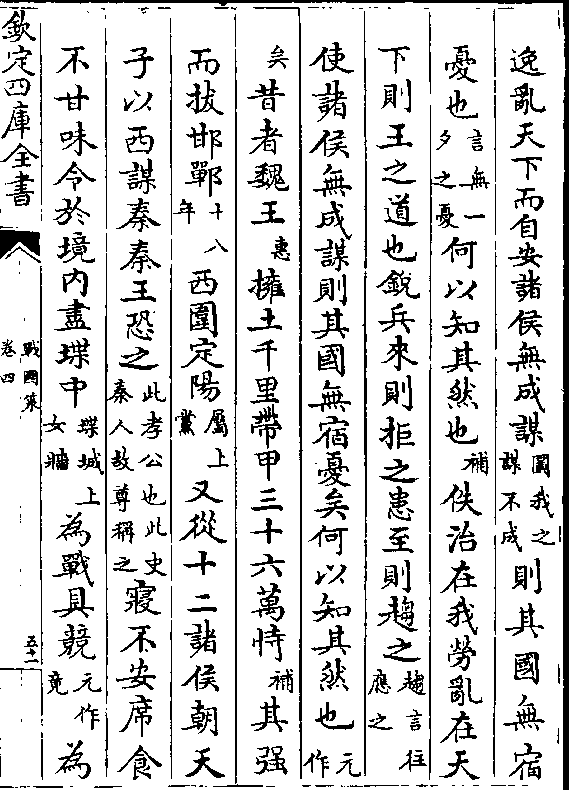 逸亂天下而自安諸侯無成謀圖我之謀不成則其國無宿
憂也言無一夕之憂何以知其然也補佚治在我勞亂在天
下則王之道也銳兵來則拒之患至則趨之趨言往應之
使諸侯無成謀則其國無宿憂矣何以知其然也元作
矣昔者魏王惠擁土千里帶甲三十六萬恃補其强
而拔邯鄲十八年西圍定陽屬上黨又從十二諸侯朝天
子以西謀秦秦王恐之此孝公也此史秦人故尊稱之寢不安席食
不甘味令於境内盡堞中堞城上女牆為戰具競元作竟為
欽定四庫全書
戰國策
卷四